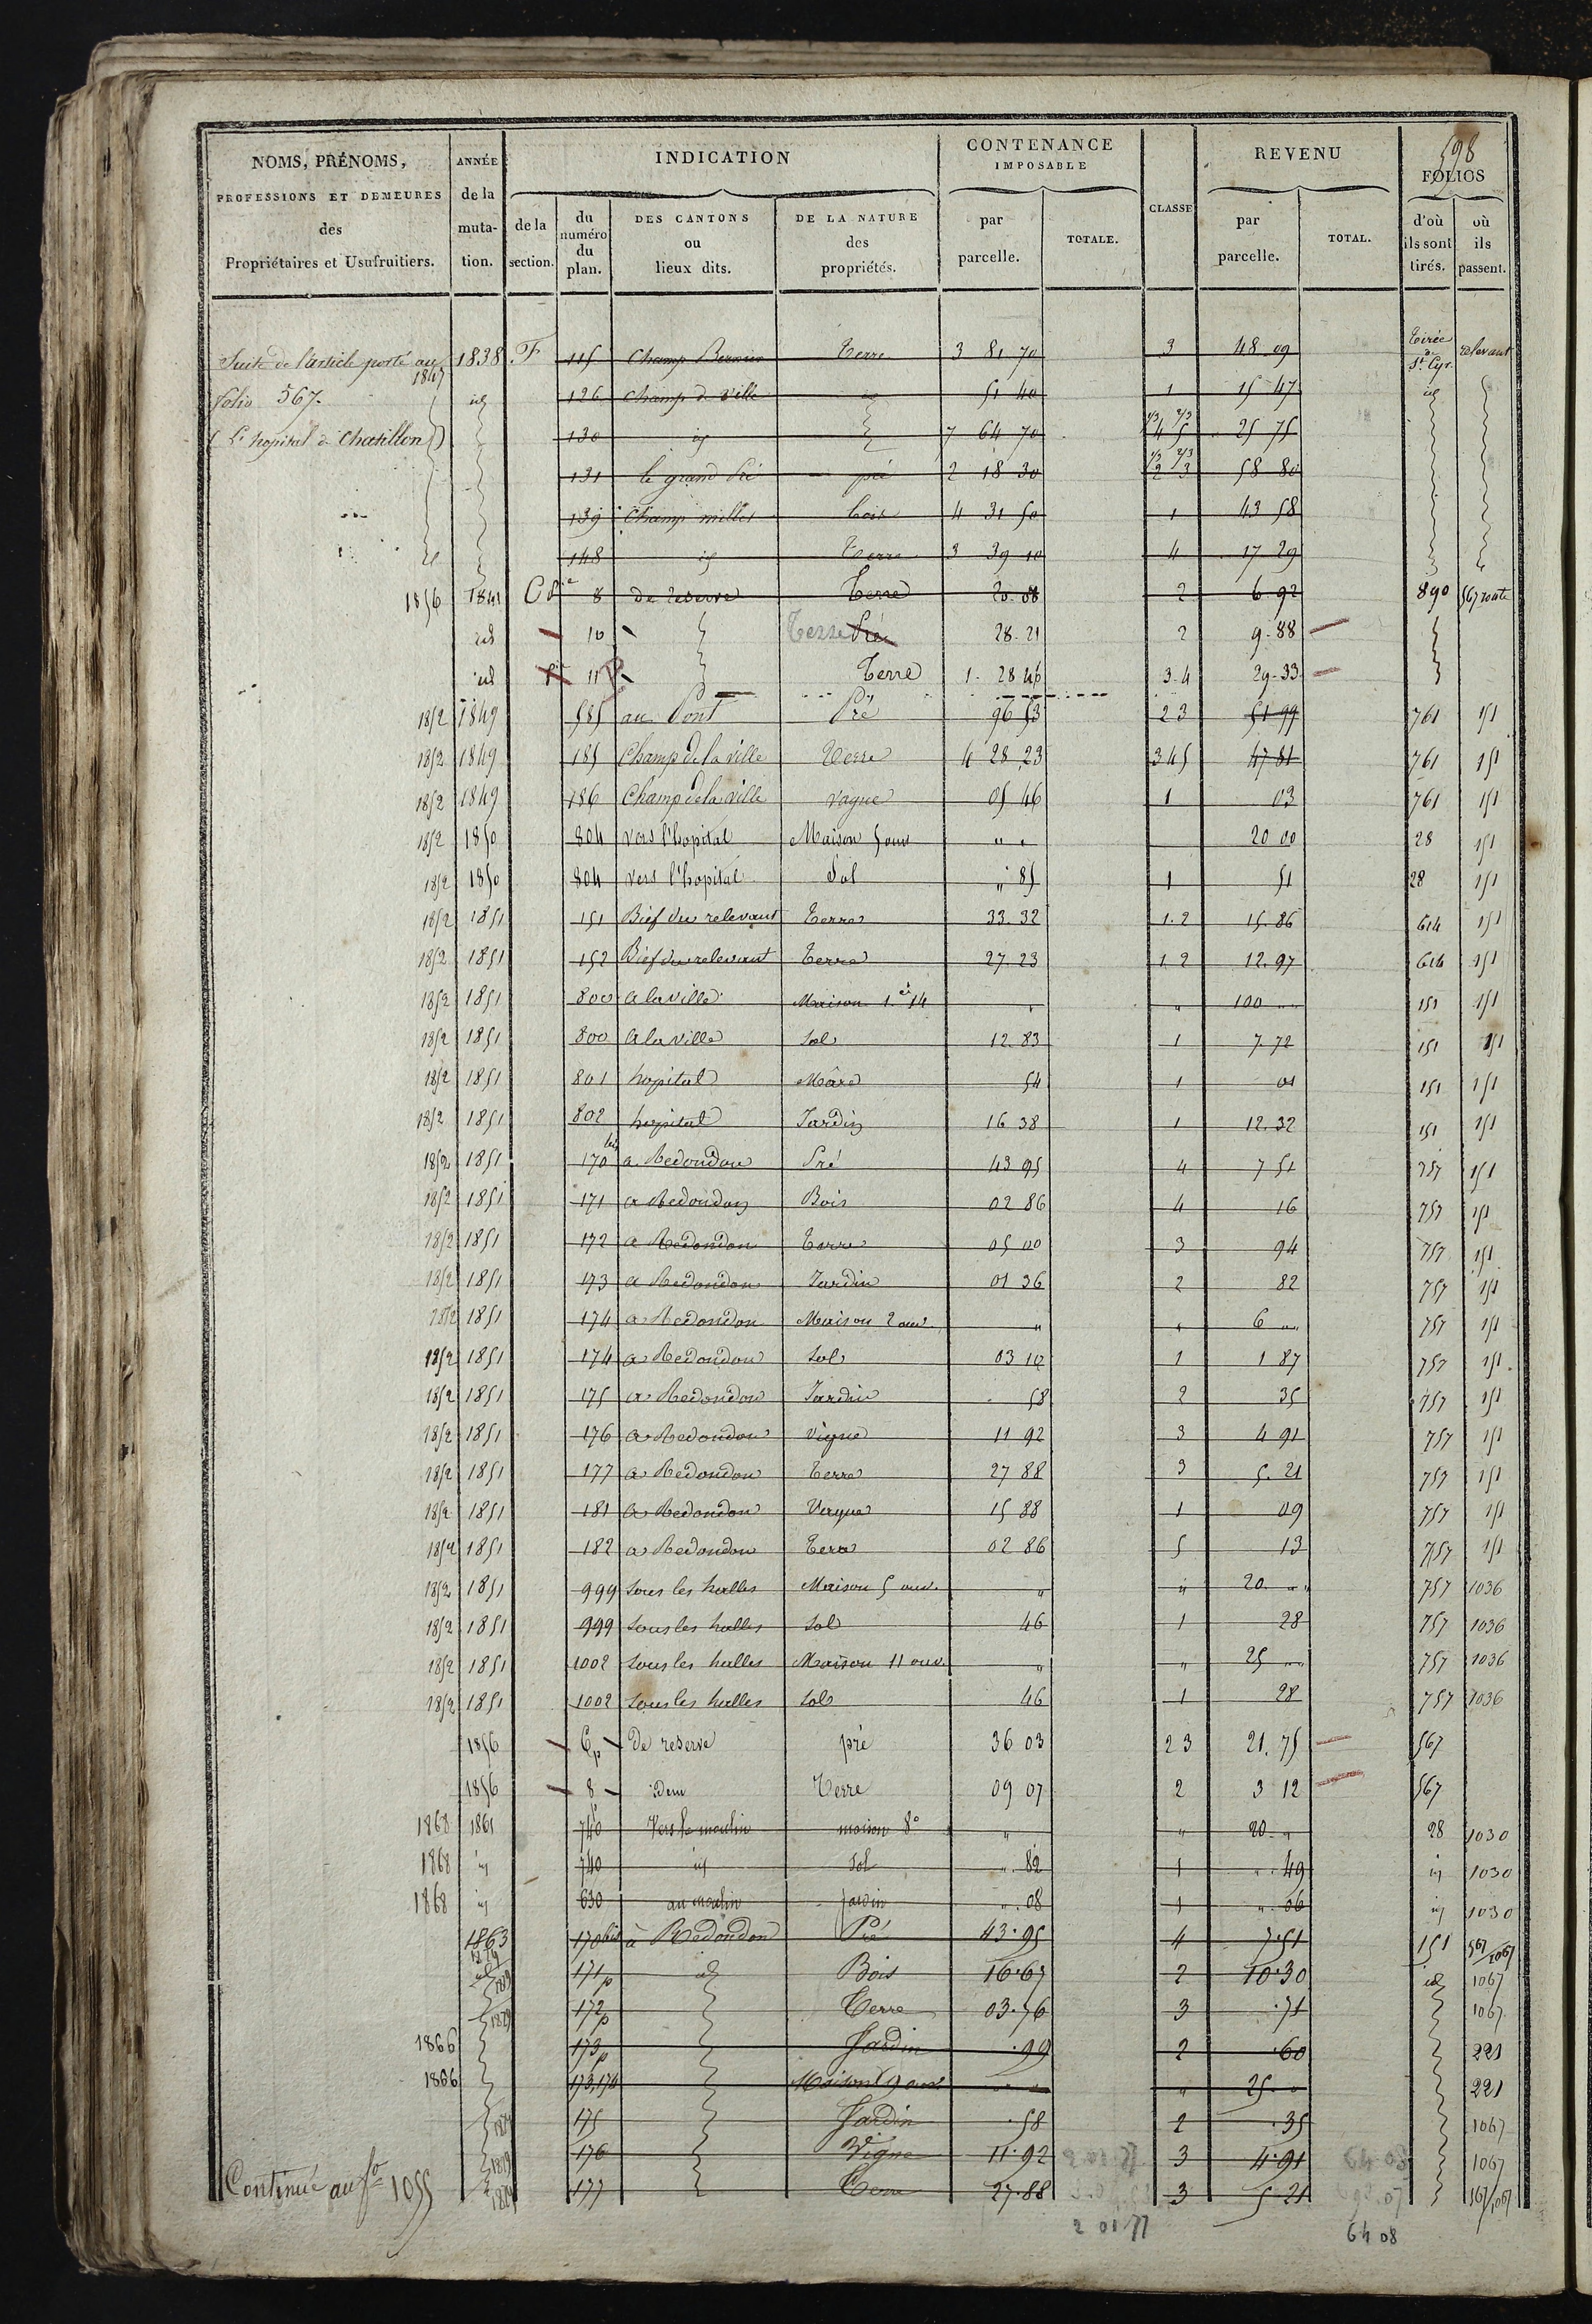 598
NOMS, PRÉNOMS, PROFESSIONS ET DEMEURES des Propriétaires et Usufruitiers.
ANNÉE de la muta- tion.
INDICATION
de la section.
du numéro du plan.
DES CANTONS ou lieux dits.
DE LA NATURE des propriétés.
CONTENANCE IMPOSABLE
par parcelle.
TOTALE.
CLASSE
REVENU
par parcelle.
TOTAL.
FOLIOS
d'où ils sont tirés.
où ils passent.
Suite de l'article porté au 1838 F 115 Champ Terre 3 81 70 3 48 09 tirée de St. Cyr relevant
1847
folio 567. id 126 Champ de Ville id 51 40 1 15 47 id
(L'hopital de Chatillon) 130 id 7 64 70 1/3 2/3 4 5 25 75
131 le grand Pré pré 2 18 30 1/3 2/3 2 3 58 80
139 Champ millet bois 4 31 50 1 43 58
148 id Terre 3 39 10 4 17 29
1856 1841 8 de reserve Terre 20.08 2 6 92 890 567 route
id 10 Terre Pré 28.21 2 9.88
id 11 Terre 1. 28 46 3.4 29.33
1852 1849 585 au Pont Pré 96 53 2 3 51 99 761 151
1852 1849 185 Champ de la ville Terre 4 28 23 3 4 5 47 81 761 151
1852 1849 186 Champ de la ville vague 05 46 1 03 761 151
1852 1850 804 vers l'hopital Maison 5 ouv " " 20 00 28 151
1852 1850 804 vers l'hopital Sol " 85 1 51 28 151
1852 1851 151 Bief du relevant Terre 33.32 1.2 15.86 614 151
1852 1851 152 Bief du relevant Terre 27.23 1 2 12.97 614 151
1852 1851 800 a la ville Maison 1.e 14 " " 100 " 151 151
1852 1851 800 a la ville Sol 12.83 1 7 72 151 151
1852 1851 801 hopital Mare 54 1 01 151 151
1852 1851 802 hopital Jardin 16 38 1 12.32 151 151
1852 1851 170 bis a Redondon Pré 43 95 4 7 51 757 151
1852 1851 171 a Redondon Bois 02 86 4 16 757 151
1852 1851 172 a Redondon Terre 05 00 3 94 757 151
1852 1851 173 a Redondon Jardin 01 36 2 82 757 151
1852 1851 174 a Redondon Maison 2 ouv. " " 6 " 757 151
1852 1851 174 a Redondon Sol 03 12 1 1 87 757 151
1852 1851 175 a Redondon Jardin 58 2 35 757 151
1852 1851 176 a Redondon Vigne 11 92 3 4 91 757 151
1852 1851 177 a Redondon Terre 27 88 3 5.21 757 151
1852 1851 181 a Redondon Vague 15 88 1 09 757 151
1852 1851 182 a Redondon Terre 02 86 5 13 757 151
1852 1851 999 sous les halles Maison 5 ouv. " " 20 " 757 1036
1852 1851 999 sous les halles Sol 46 1 28 757 1036
1852 1851 1002 sous les halles Maison 11 ouv. " " 25 " 757 1036
1852 1851 1002 sous les halles Sol 46 1 28 757 1036
1856 6p De reserve pré 36 03 2 3 21.75 567
1856 8p idem Terre 09 07 2 3 12 567
1868 1861 740 Vers le moulin maison 8o " " 20 " 28 1030
1868 id 740 id Sol ".82 1 ".49 id 1030
1868 id 630 au moulin jardin ".08 1 ".06 id 1030
1863 170 bis à Redondon Pré 43.95 4 7.51 151 567/1067
id 171p id Bois 16.67 2 10.30 id 1067
172p Terre 03.76 3 .71 1067
1866 173p Jardin .99 2 .60 221
1866 173,174 Maison 9 ouv " " 25. " 221
175 Jardin .58 2 .35 1067
176 Vigne 11.92 3 4.91 1067
Continué au fo 1055 177 Terre 27.88 3 5 21 567/1067
2 01 77 64 08